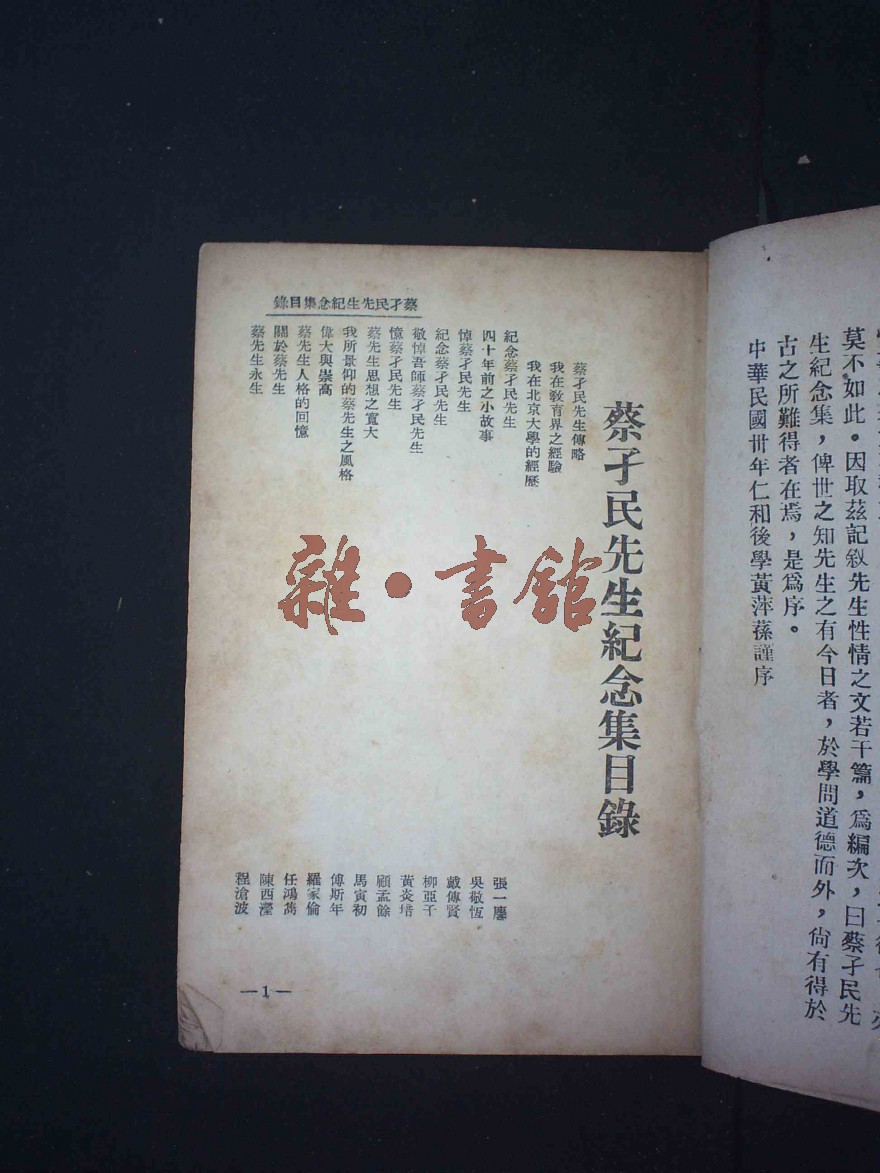 莫不如此。因取茲記敘先生性情之文若干篇，爲編次，曰蔡孑民先
生紀念集，俾世之知先生之有今日者，於學問道德而外，尙有得於
古之所難得者在焉，是爲序。
中華民國卅年仁和後學黃萍蓀謹序
蔡孑民先生紀念集目錄
蔡孑民先生紀念集目錄
蔡孑民先生傳略
我在敎育界之經驗
我在北京大學的經歷
紀念蔡孑民先生 張一麐
四十年前之小故事 吳敬恆
悼蔡孑民先生 戴傳賢
紀念蔡孑民先生 柳亞子
敬悼吾師蔡孑民先生 黃炎培
憶蔡孑民先生 顧孟餘
蔡先生思想之寬大 馬寅初
我所景仰的蔡先生之風格 傅斯年
偉大與崇高 羅家倫
蔡先生人格的回憶 任鴻雋
關於蔡先生 陳西瀅
蔡先生永生 程滄波
—1—
雜·書館